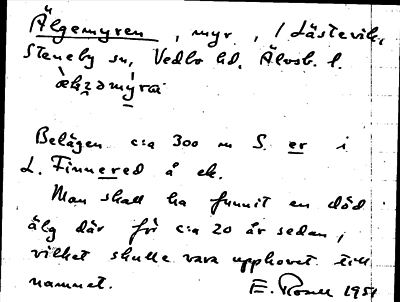 Älgemyren, myr, / Lästevik,
Steneby sn, Vedbo hd. Älvsb. l.
Belägen c:a 300 m S. er i
L. Finnered å ek.
Man skall ha funnit en död
älg där för c:a 20 år sedan,
vilket skulle vara upphovet till
namnet. E. 1951